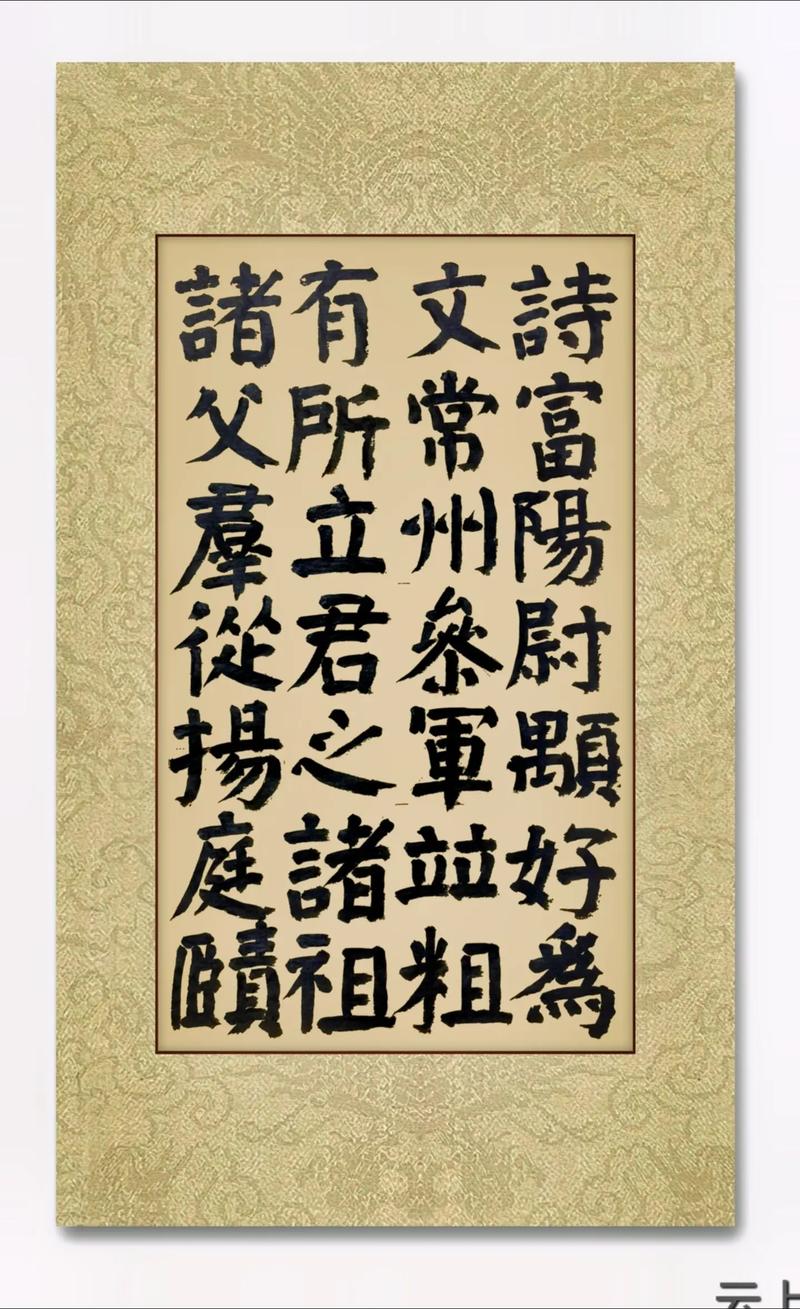 詩富陽尉顒好爲
文常州參軍竝粗
有所立君之諸祖
諸父羣從揚庭賾